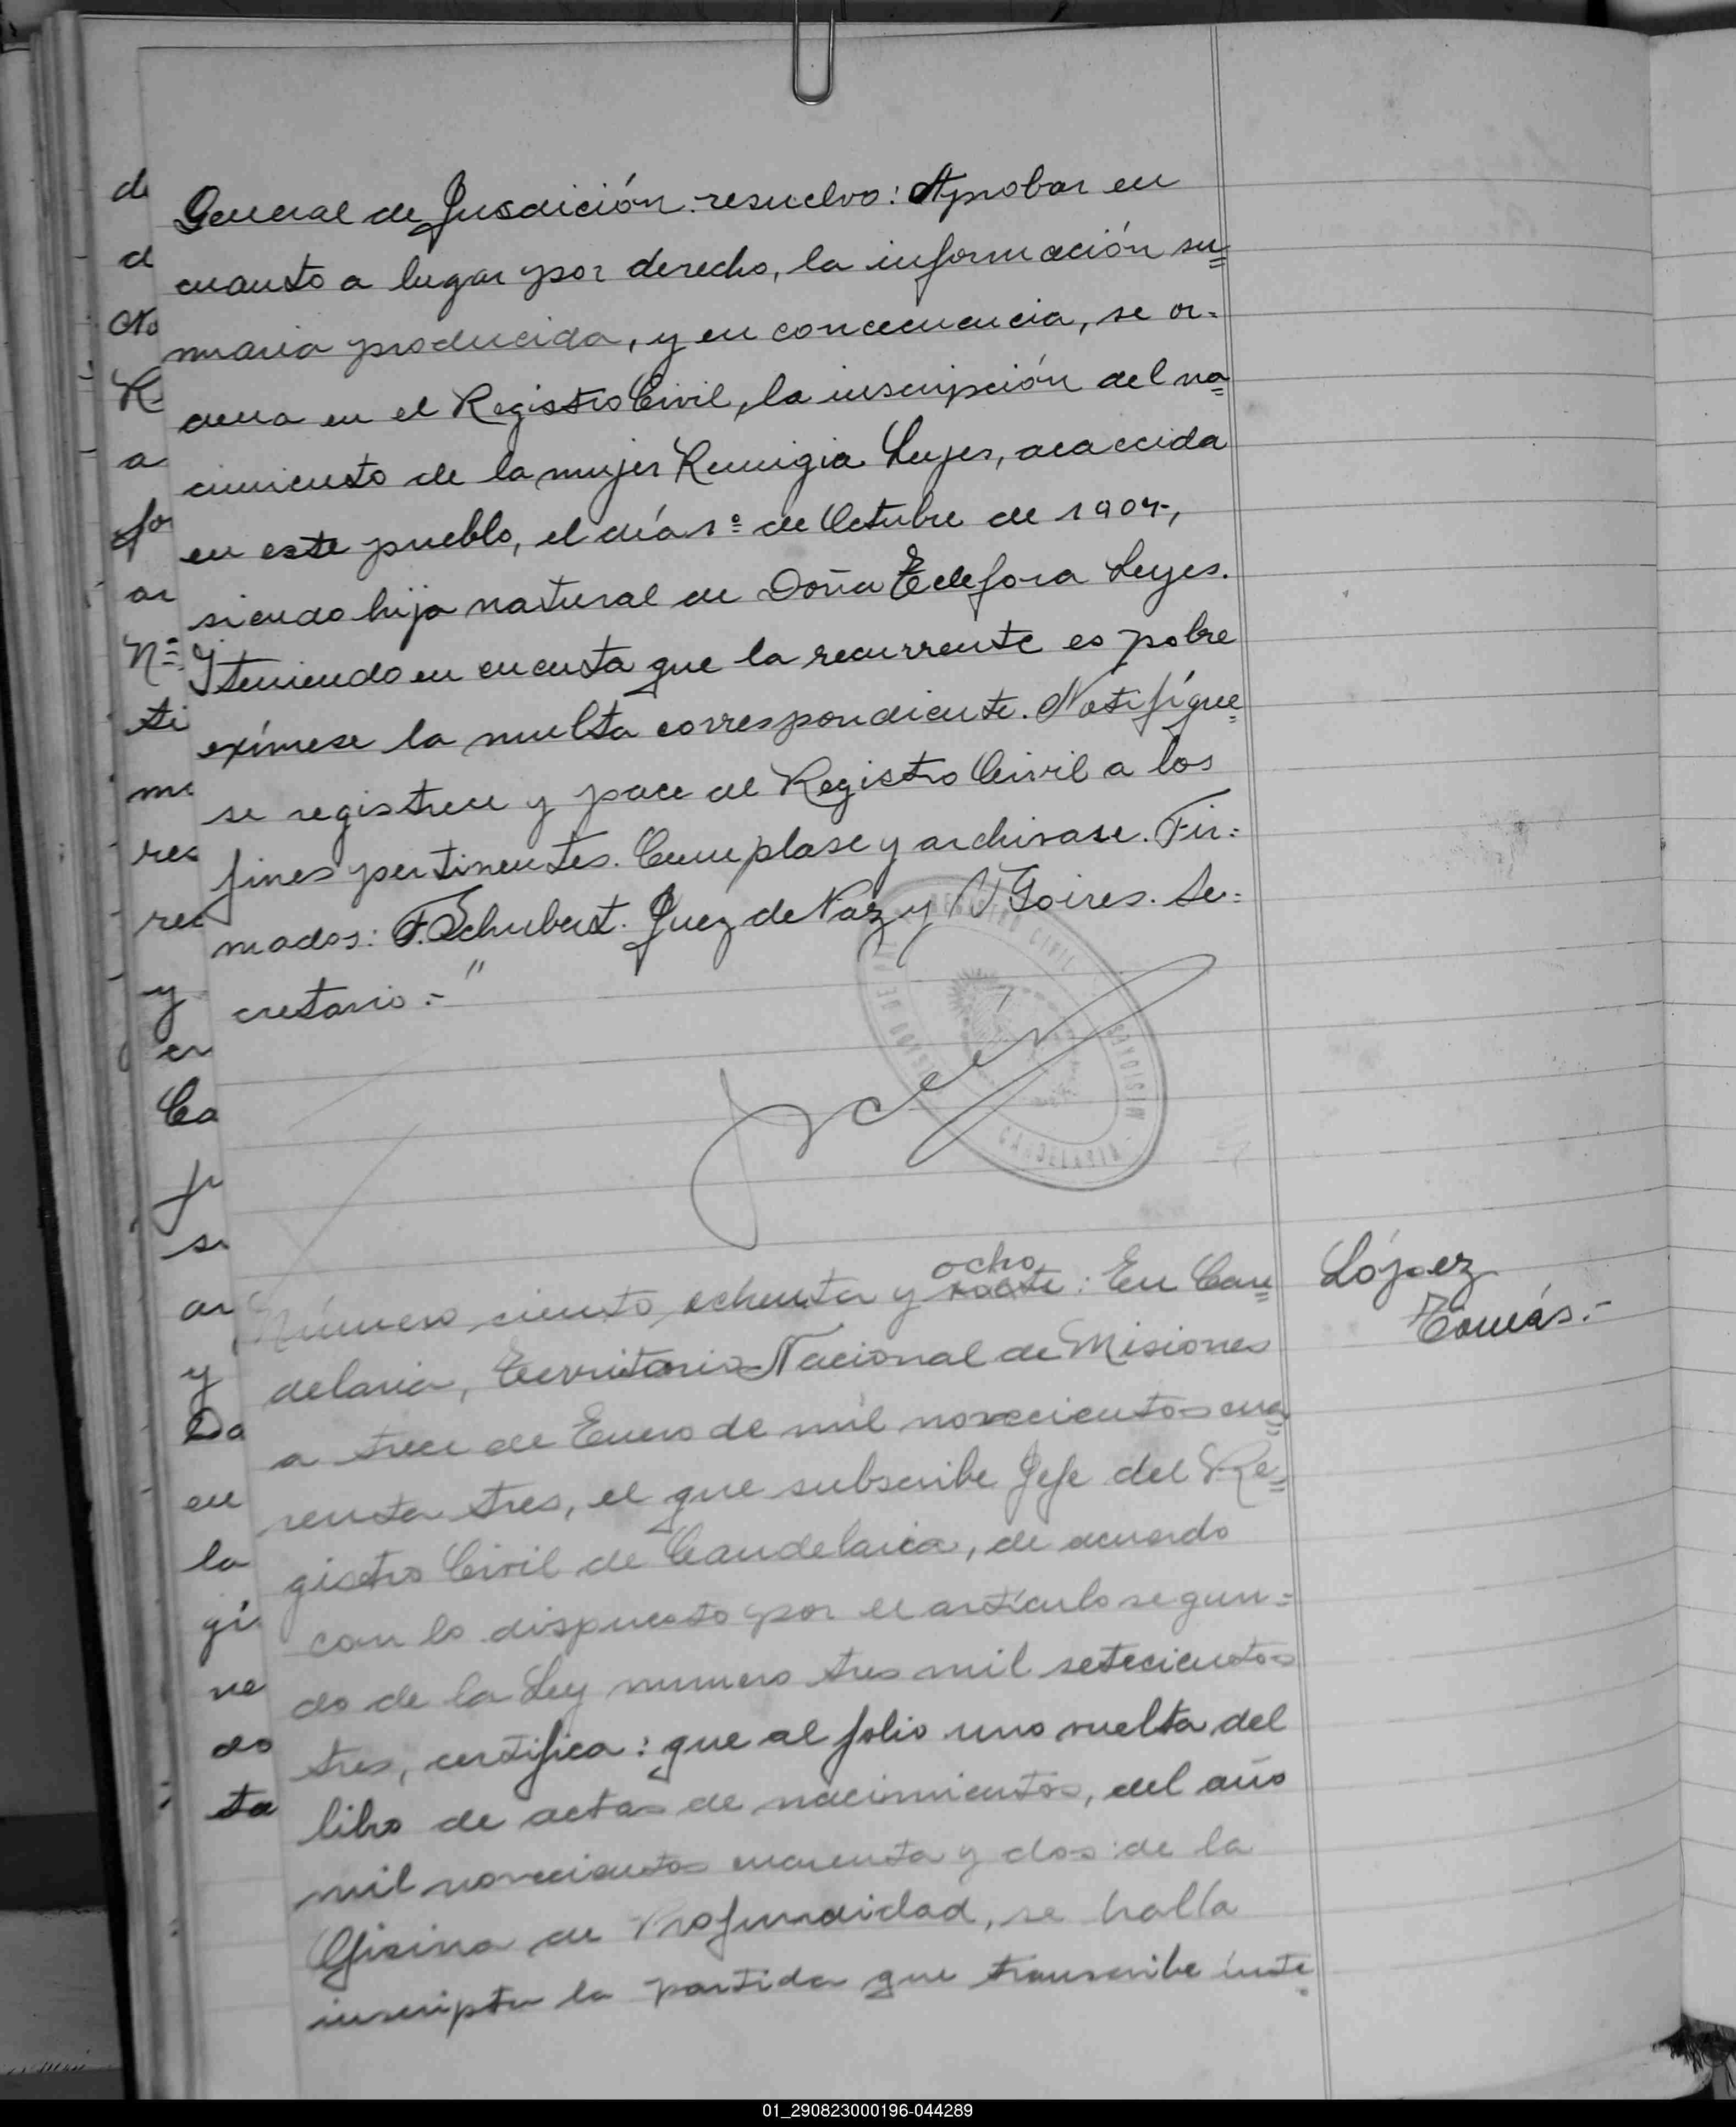 General de Jusdición: resuelvo: Aprobar en
cuanto a lugar por derecho, la información su=
maria producida, y en concecuencia, se or=
dena en el Registro Civil, la inscripción del na=
cimiento de la mujer Remigia Leyes, acaecida
en este pueblo, el día 1º de Octubre de 1904,
siendo hija natural de Doña Telefora Leyes.
I teniendo en cuenta que la recurrente es pobre
exímese la multa correspondiente. Notifíque=
se registrese y pace al Registro Civil a los
fines pertinentes. Cumplase y archivase. Fir=
mados: F. Schubert. Juez de Paz y Goires. Se=
cretario.-"
REGISTRO CIVIL
MISIONES
CANDELARIA
Número ciento ochenta y ocho: En Can=
delaria, Territorio Nacional de Misiones
a trece de Enero de mil novecientos cua=
renta tres, el que subscribe Jefe del Re=
gistro Civil de Candelaria, de acuerdo
con lo dispuesto por el artículo segun=
do de la Ley numero tres mil setecientos
tres, certifica: que al folio uno vuelta del
libro de actas de nacimientos, del año
mil novecientos cuarenta y dos de la
Oficina de Profundidad, se halla
inscripta la partida que transcribe inte=
López
Tomás.-
d
d
No
R
a
fo
ar
Nº
ti
me
res
res
y
en
Ca
fr
se
ar
y
Do
en
la
gi
ve
do
ta
01_290823000196-044289